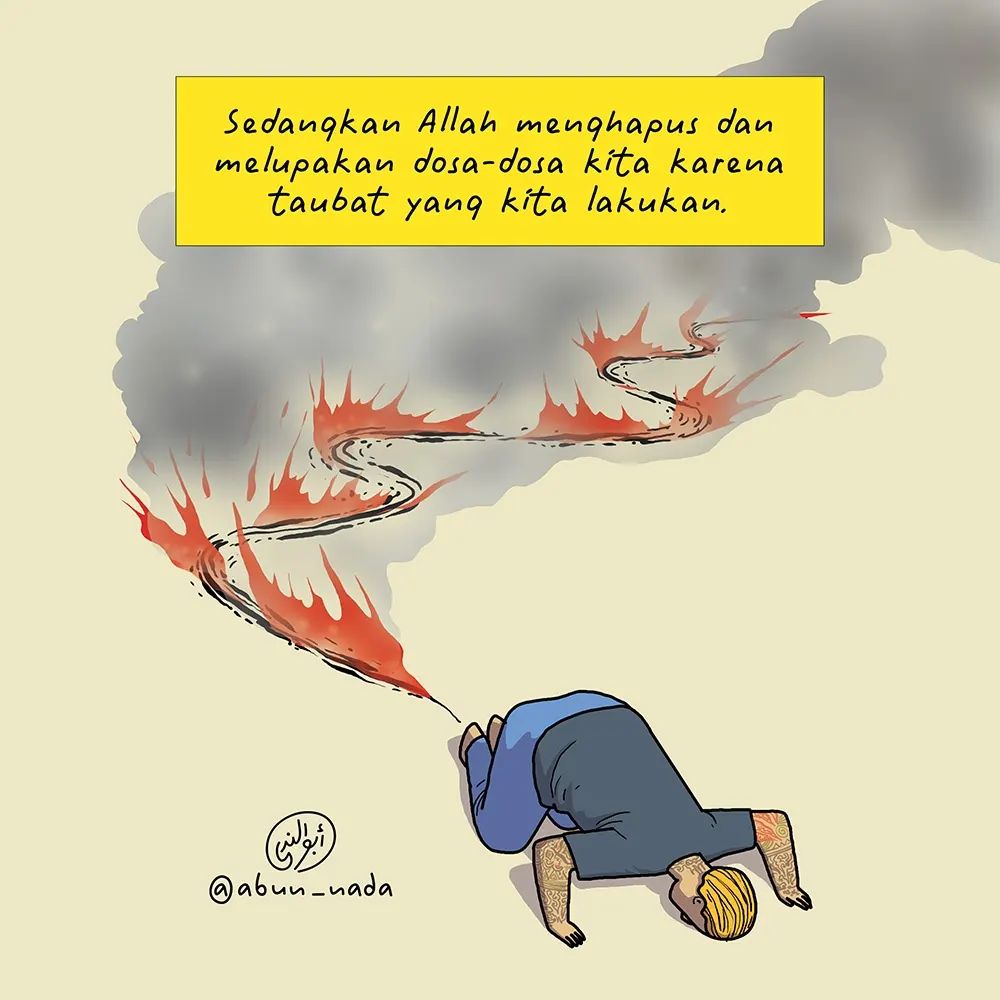 Sedangkan Allah menghapus dan
melupakan dosa-dosa kita karena
taubat yang kita lakukan.
أبو الندى
@abun_nada